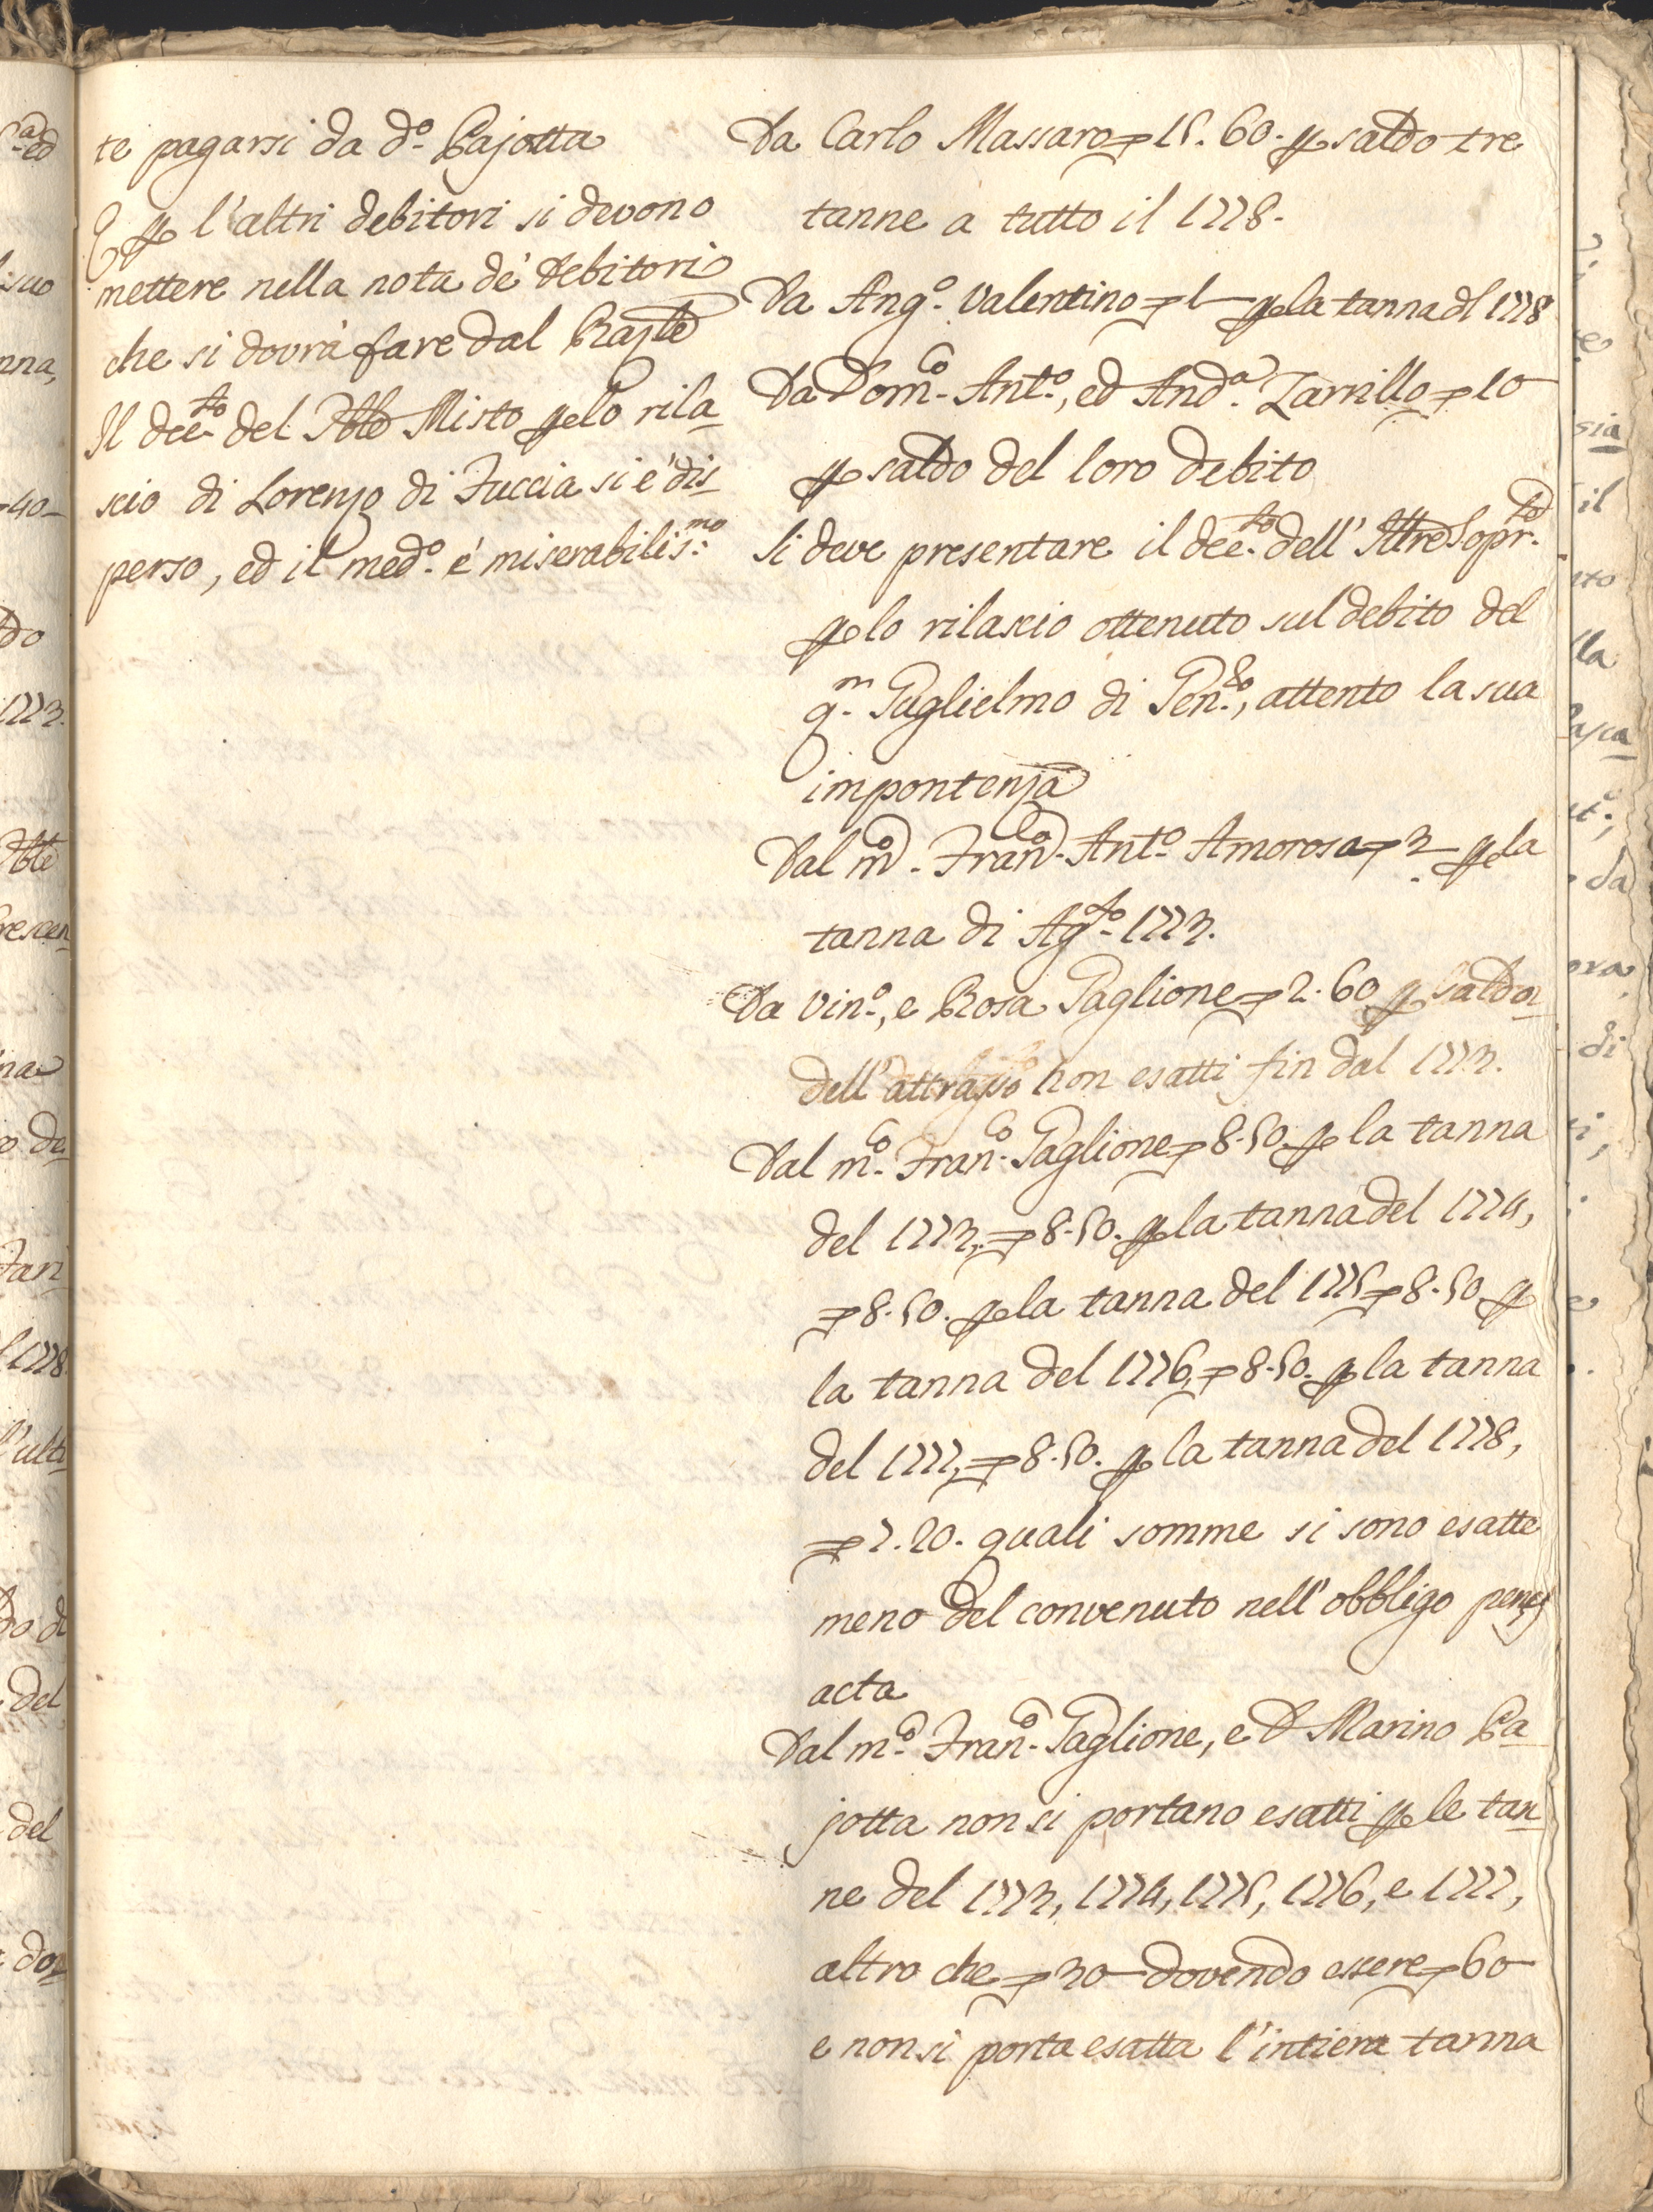 te pagarsi da d.º Bajotta
E p l'altri debitori si devono
mettere nella nota de' debitori
che si dovrà fare dal
Il dec.to del Tble Misto p lo rila_
scio di Lorenzo di Fuccia si è dis_
perso, ed il med.º è miserabilis.mo
Da Carlo Massaro 15.60. p saldo tre
tanne a tutto il 1778.
Da Ang.º Valentino 1— p la tanna dl 1778
Da Dom.co Ant.º, ed And.a Zarrillo 10—
p saldo del loro debito
Si deve presentare il dec.to dell' Illre Sopr.
p lo rilascio ottenuto sul debito del
q.m Guglielmo di Gen.ro, attento la sua
impontenza
Dal m.co Fran.co Ant.º Amorosa 3— p la
tanna di Ag.to 1773.
Da Vin.º, e Rosa Paglione 2.60 p saldo
dell' attrasso non esatti fin dal 1773.
Dal m.co Fran.co Paglione 8.50. p la tanna
del 1773, 8.50. p la tanna del 1774,
8.50. p la tanna del 1775 8.50 p
la tanna del 1776, 8.50. p la tanna
del 1777, 8.50. p la tanna del 1778,
7.20. quali somme si sono esatte
meno del convenuto nell' obbligo penes
acta
Dal m.co Fran.co Paglione, e D Marino Ba_
jotta non si portano esatti p le tan_
ne del 1773, 1774, 1775, 1776, e 1777,
altro che 30— dovendo essere 60—
e non si porta esatta l'intiera tanna